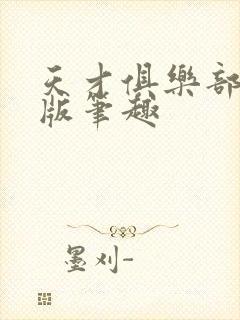 天才俱樂部
版筆趣
墨刈-